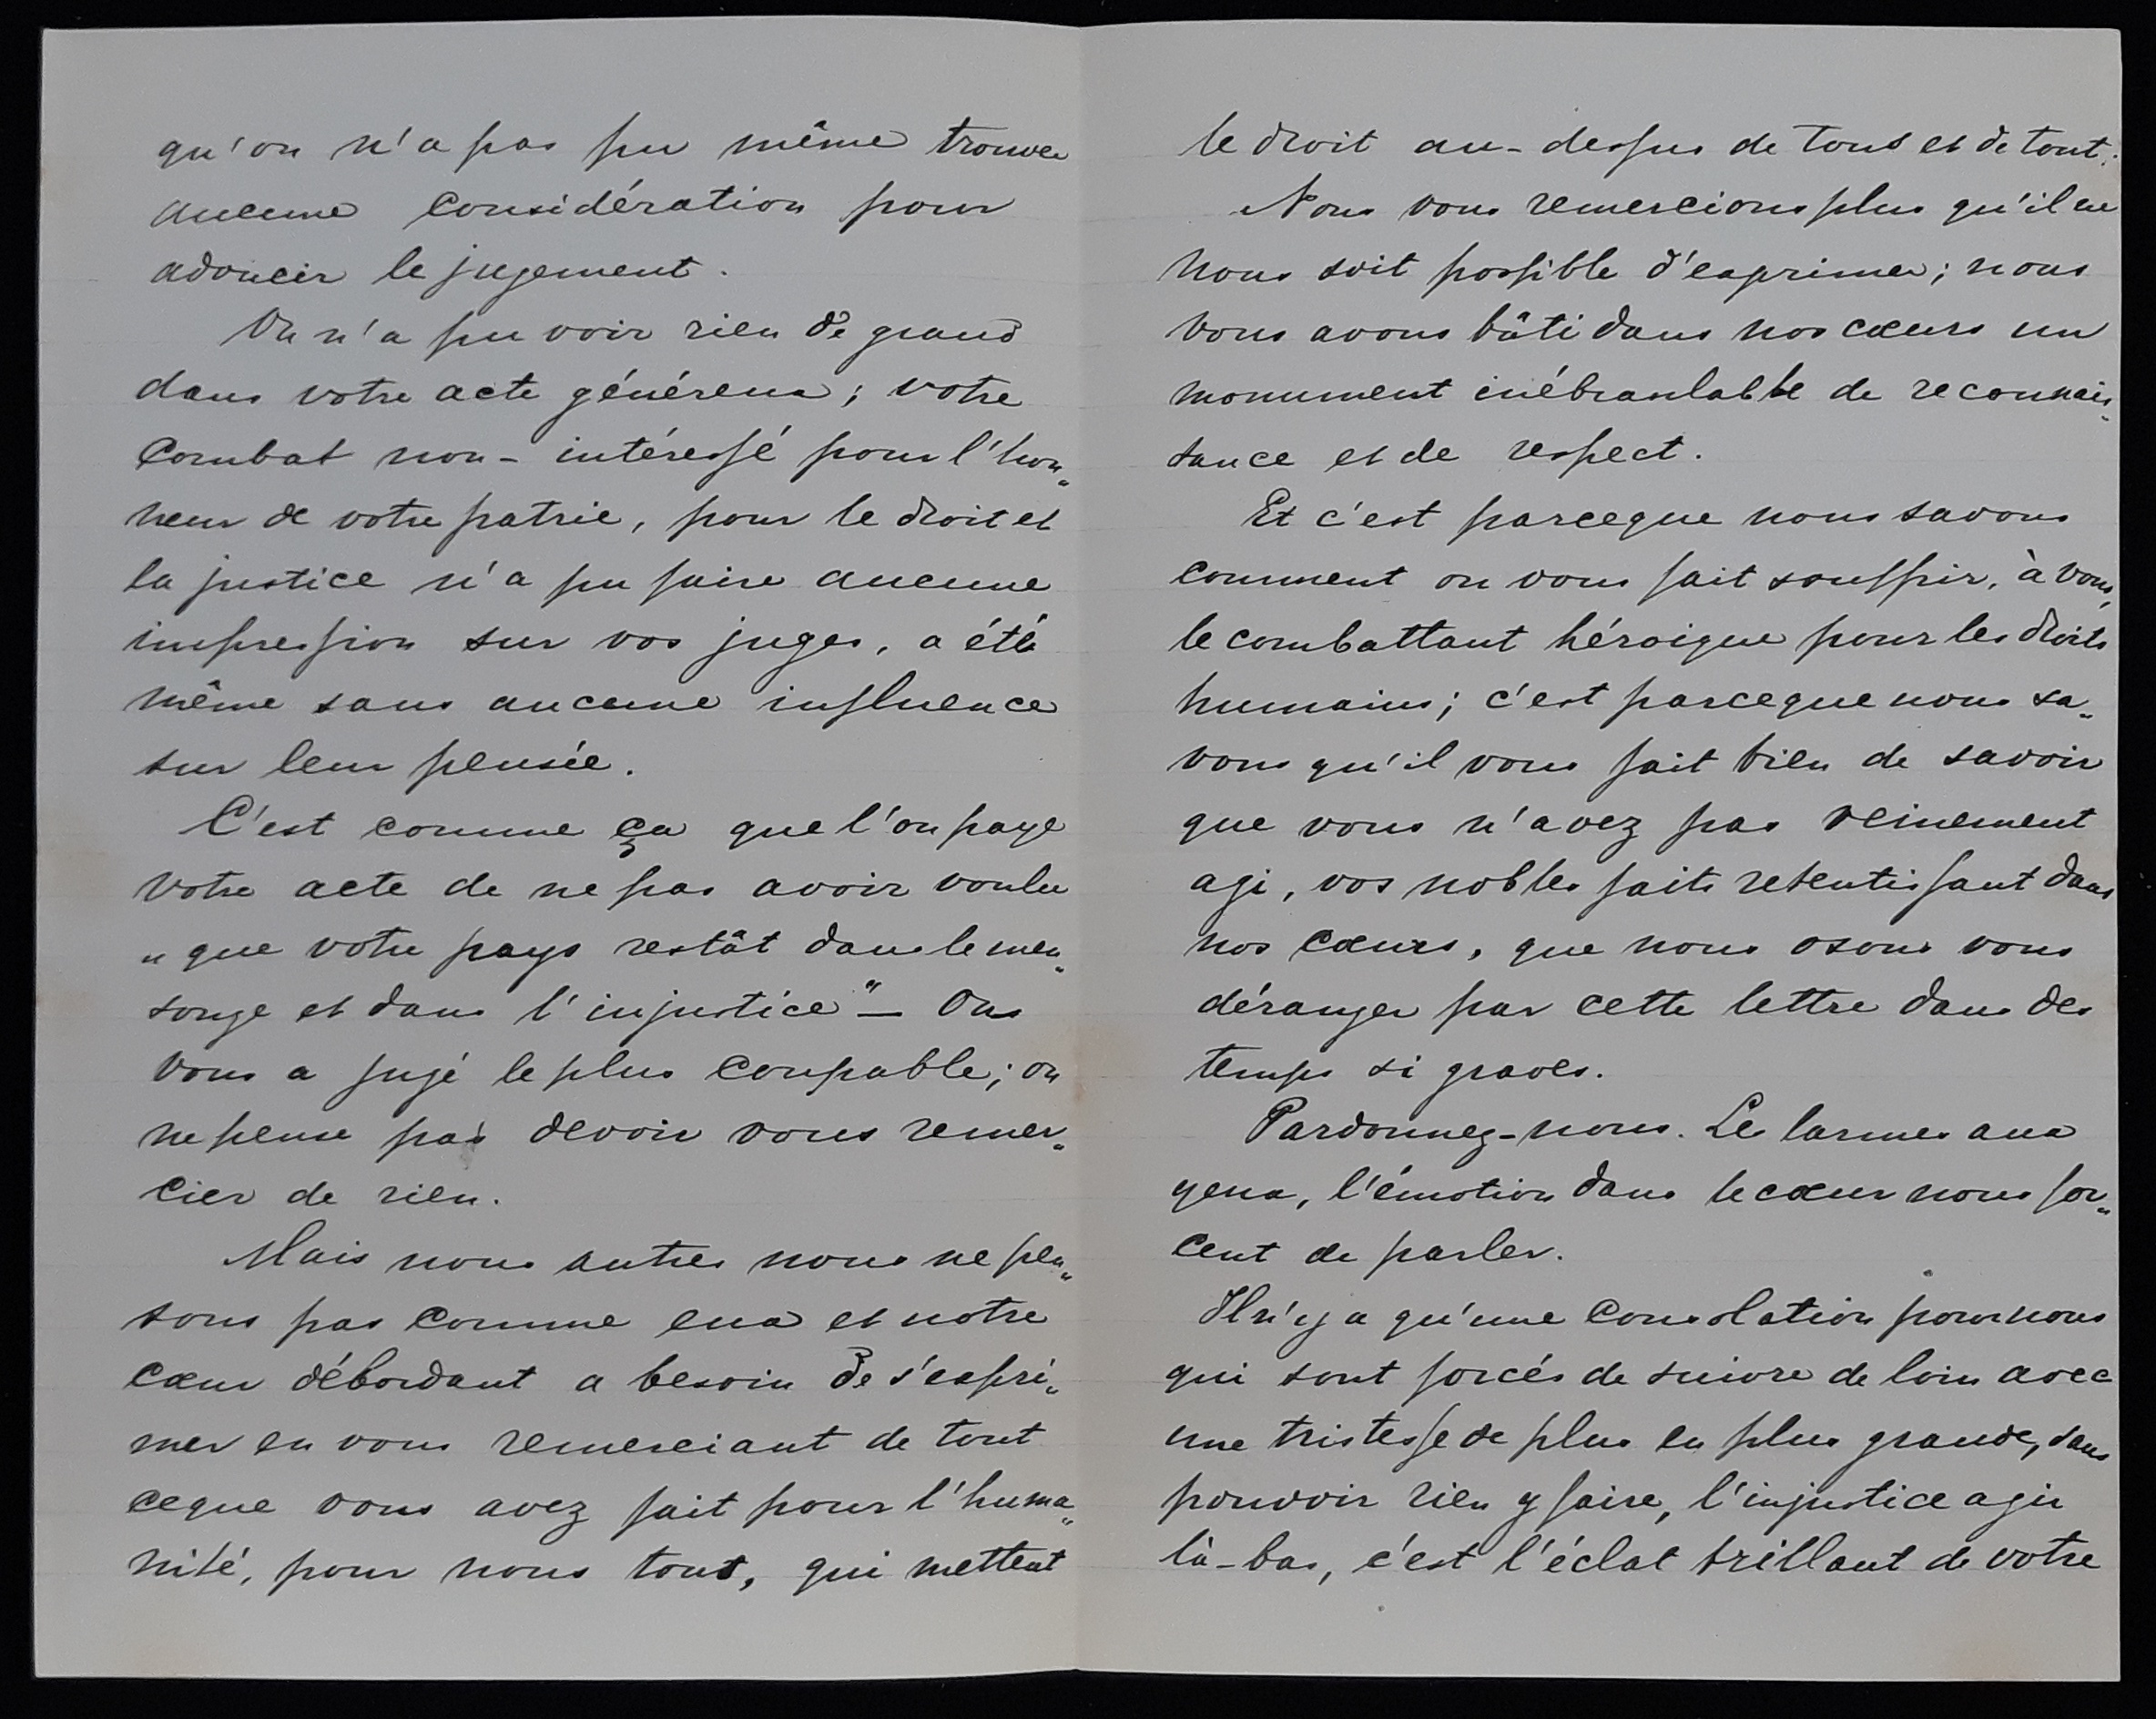 qu'on n'a pas pu même trouver
aucune considération pour
adoucir le jugement.
On n'a pu voir rien de grand
dans votre acte généreux; votre
combat non-intéressé pour l'hon„
neur de votre patrie, pour le droit et
la justice n'a pu faire aucune
impression sur vos juges, a été
même sans aucune influence
sur leur pensée.
C'est comme ça que l'on paye
votre acte de ne pas avoir voulu
„que votre pays restât dans le men„
songe et dans l'injustice" — On
vous a jugé le plus coupable; on
ne pense pas devoir vous remer„
cier de rien.
Mais nous autres nous ne pen„
sons pas comme eux et notre
cœur débordant a besoin de s'expri„
mer en vous remerciant de tout
ceque vous avez fait pour l'huma„
nité, pour nous tous, qui mettent
le droit au-dessus de tous et de tout.
Nous vous remercions plus qu'il en
nous soit possible d'exprimer; nous
vous avons bâti dans nos cœurs un
monument inébranlable de reconnais„
sance et de respect.
Et c'est parceque nous savons
comment on vous fait souffrir, à vous,
le combattant héroique pour les droits
humains; c'est parceque nous sa„
vons qu'il vous fait bien de savoir
que vous n'avez pas veinement
agi, vos nobles faits retentissant dans
nos cœurs, que nous osons vous
déranger par cette lettre dans des
temps si graves.
Pardonnez-nous. Les larmes aux
yeux, l'émotion dans le cœur nous for„
cent de parler.
Il n'y a qu'une consolation pour nous
qui sont forcés de suivre de loin avec
une tristesse de plus en plus grande, sans
pouvoir rien y faire, l'injustice agir
là-bas, c'est l'éclat brillant de votre